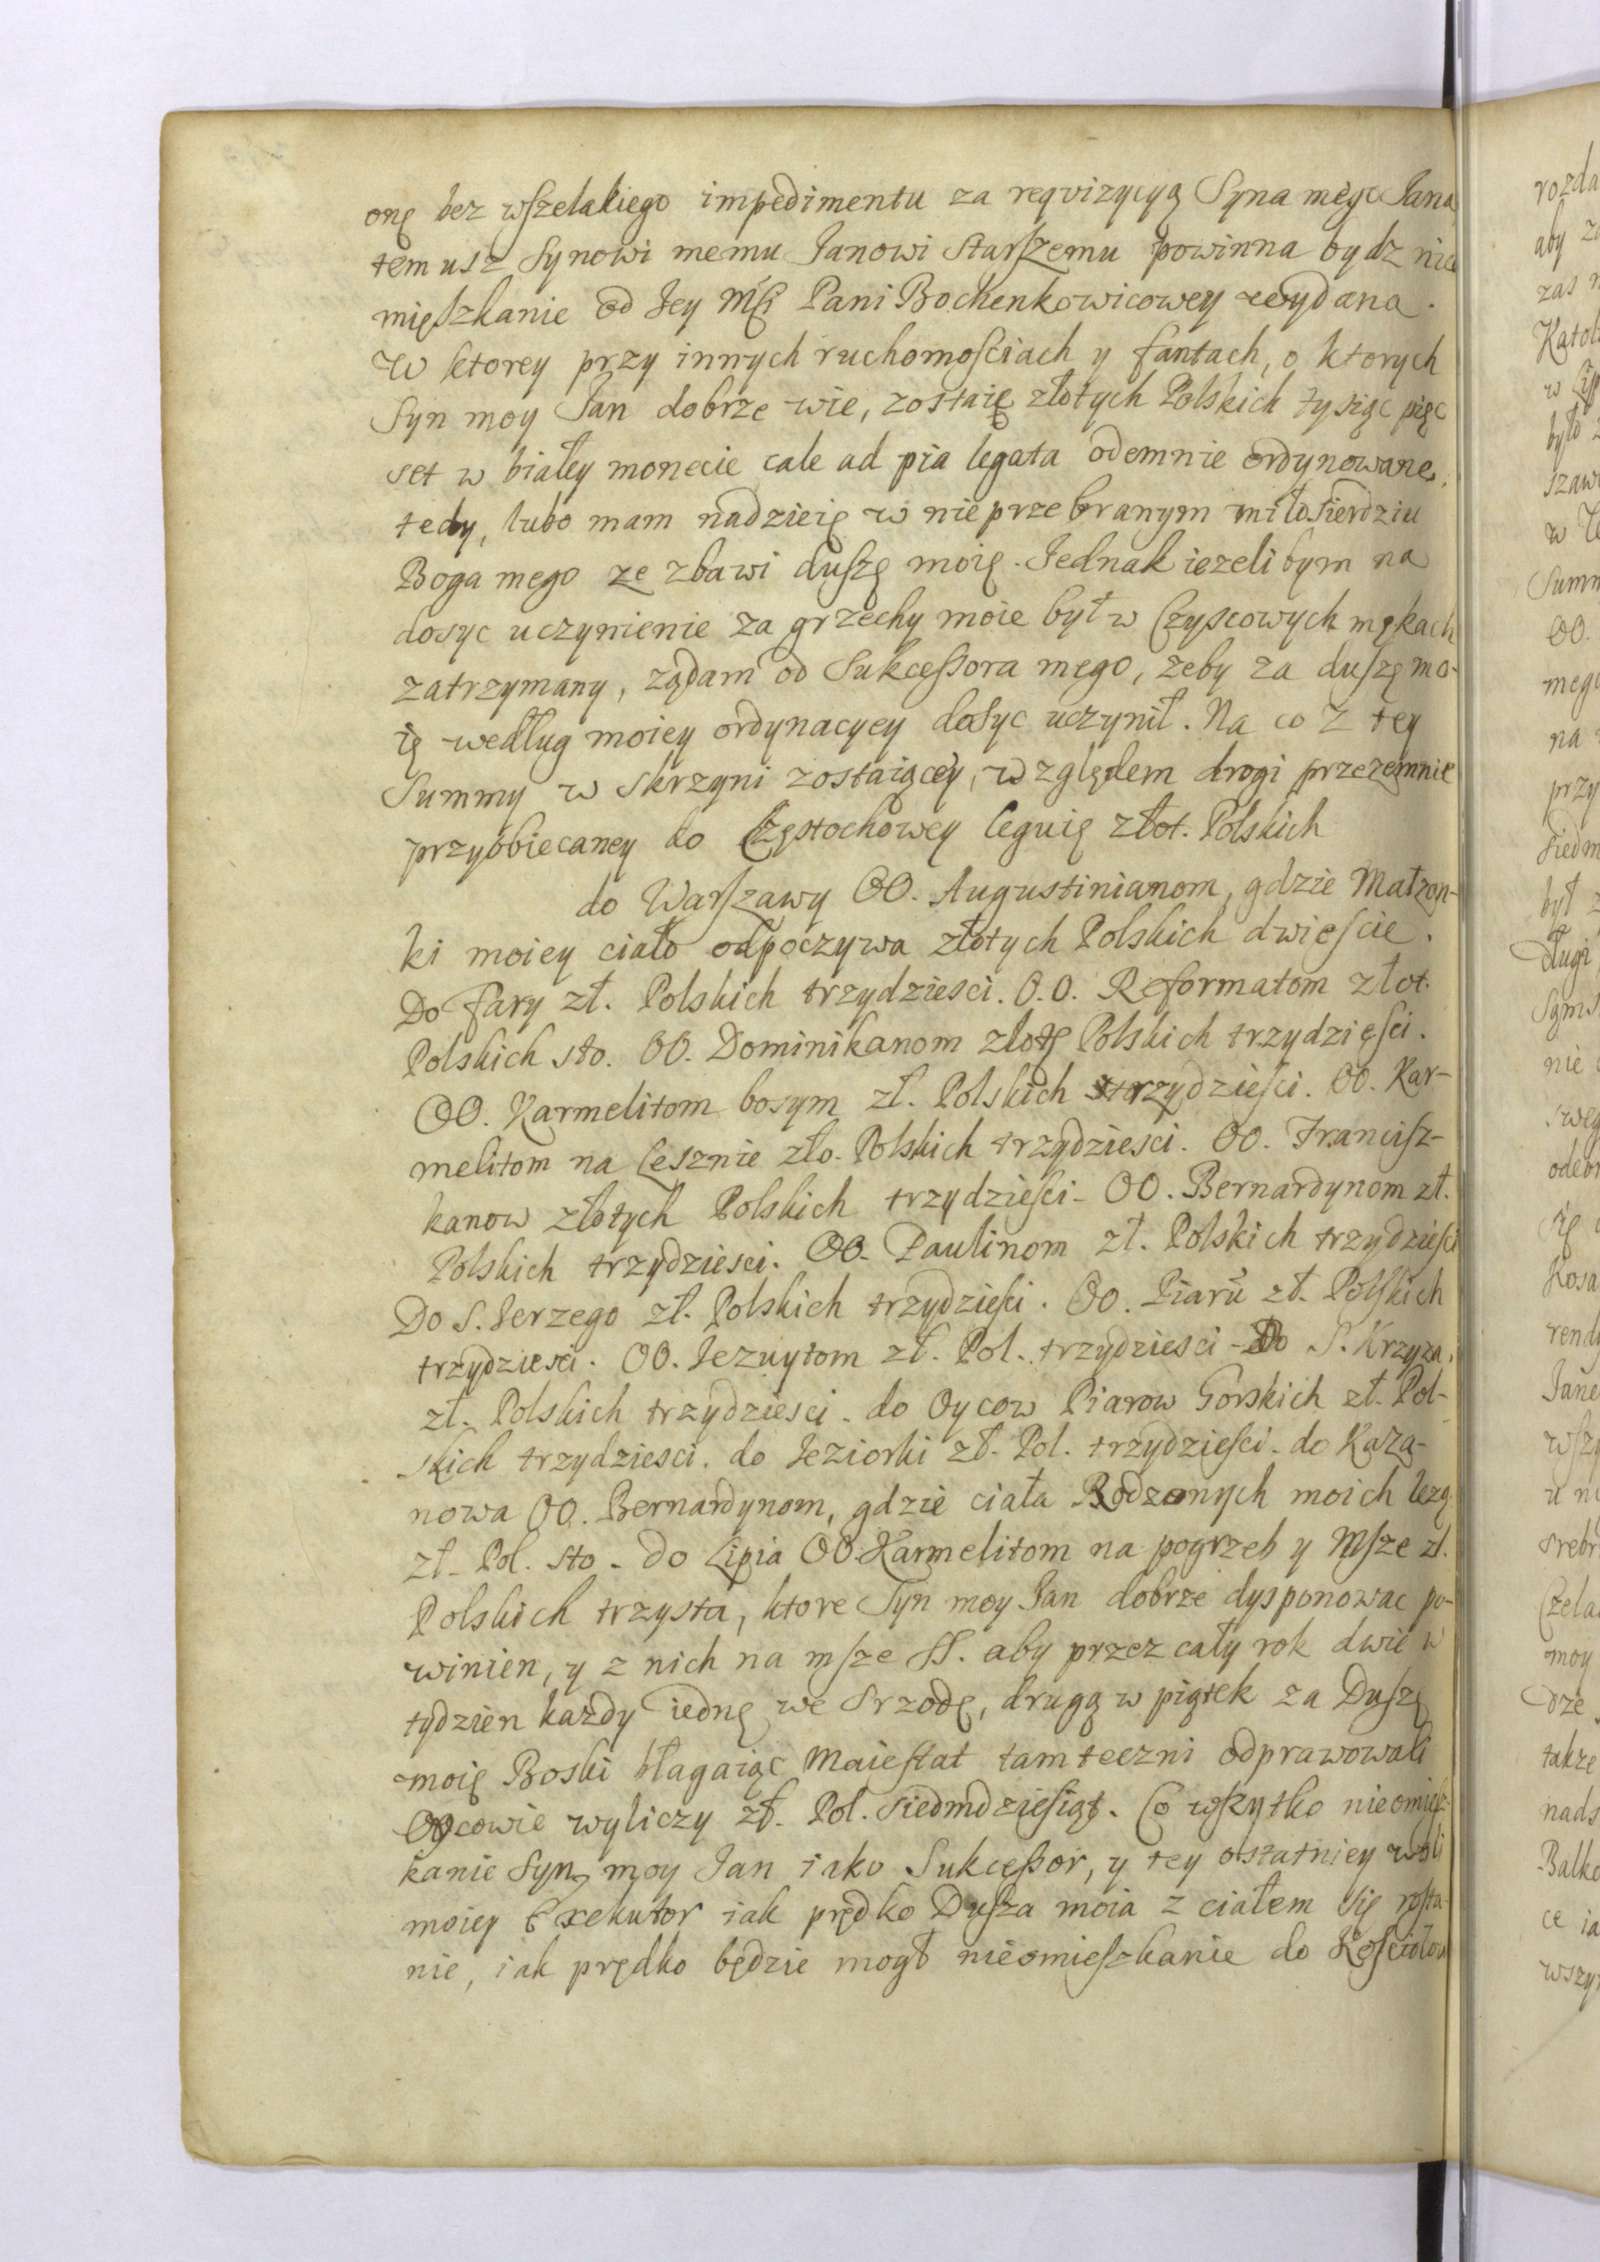 onę bez wszelakiego impedimentu za reqvizycyą Syna mego Jana
temusz Synowi memu Janowi Starszemu powinna bydz nie
mięszkanie od Jey Mści Pani Bochenkowicowey wydana.
W ktorey przy innych ruchomościach y fantach, o ktorych
Syn moy Jan dobrze wie, zostaię złotych Polskich tysiąc pięc
set w białey monecie cale ad pia legata odemnie ordynowane,
tedy, lubo mam nadzieię w nieprzebranym miłosierdziu
Boga mego ze zbawi duszę moię. Jednak iezelibym na
dosyc uczynienie za grzechy moie był w Czyscowych mękach
zatrzymany, ządam od Sukcessora mego, zeby za duszę mo-
ię według moiey ordynacyey dosyc uczynił. Na co z tey
Summy w skrzyni zostaiącey, względem drogi przezemnie
przyobiecaney do Częstochowey leguię złot. Polskich
do Warszawy OO. Augustinianom, gdzie Małzon-
ki moiey ciało odpoczywa złotych Polskich dwieście.
Do Fary zł. Polskich trzydziesci. O.O. Reformatom złot.
Polskich sto. OO. Dominikanom złotę Polskich trzydzięści.
OO. Karmelitom bosym zł. Polskich trzydzieści. OO. Kar-
melitom na Lesznie zło. Polskich trzydziesci. OO. Francisz-
kanow złotych Polskich trzydzieści - OO. Bernardynom zł.
Polskich trzydziesci. OO. Paulinom zł. Polskich trzydzieści
Do S. Jerzego zł. Polskich trzydzieści. OO. Piarů zł. Polskich
trzydziesci. OO. Jezuytom zł. Pol. trzydziesci - Do S. Krzyza,
zł. Polskich trzydziesci. do Oycow Piarow Gorskich zł. Pol-
skich trzydziesci. do Jeziorki zł. Pol. trzydzieści. do Kaza-
nowa OO. Bernardynom, gdzie ciała Rodzonych moich lezą
zł. Pol. sto - do Lipia OO. Karmelitom na pogrzeb y Msze zł.
Polskich trzysta, ktore Syn moy Jan dobrze dysponowac po-
winien, y z nich na msze SS. aby przez cały rok dwie w
tydzien kazdy iednę we Srzodę, drugą w piątek za Duszę
moię Boski błagaiąc Maiestat tamteczni odprawowali
Oycowie wyliczy zł. Pol. siedmdziesiąt. Co wszytko nieomiesz-
kanie Syn moy Jan iako Sukcessor, y tey ostatniey woli
moiey Exekutor iak prędko Dusza moia z ciałem się rosta-
nie, iak prędko będzie mogł nieomieszkanie do Kościołow